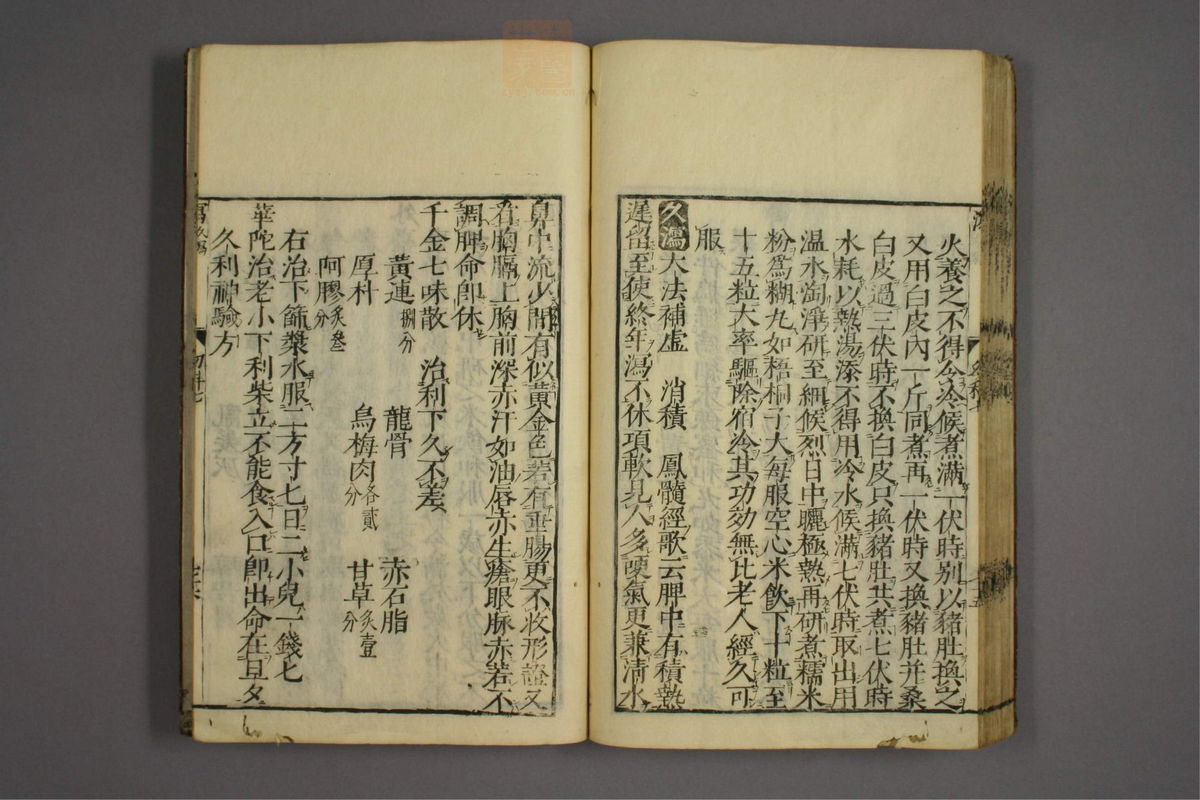 火養之不得令冷候煮滿一伏時别以豬肚換之
又用白皮內一斤同煮再一伏時又換豬肚并桑
白皮過三伏時不換白皮只換豬肚共煮七伏時
水耗以熱湯添不得用冷水候滿七伏時取出用
温水淘淨研至細候烈日中曬極熱再研煮糯米
粉爲糊丸如梧桐子大每服空心米飲下十粒至
十五粒大率驅除宿冷其功効無比老人經久可
服
久瀉大法補虛 消積 鳳髓經歌云脾中有積熱
遲留至使終年瀉不休項軟見人多哽氣更兼清水
鼻中流少間有似黄金色若有垂腸更不收形證又
看胸膈上胸前深赤汗如油唇赤生瘡眼脉赤若不
調脾命卽休
千金七味散 治利下久不差
黄連捌分 龍骨 赤石脂
厚朴 烏梅肉各貳分 甘草炙壹分
阿膠炙叁分
右治下篩漿水服二方寸匕日二小兒一錢匕
華陀治老小下利柴立不能食入口卽出命在旦夕
久利神驗方